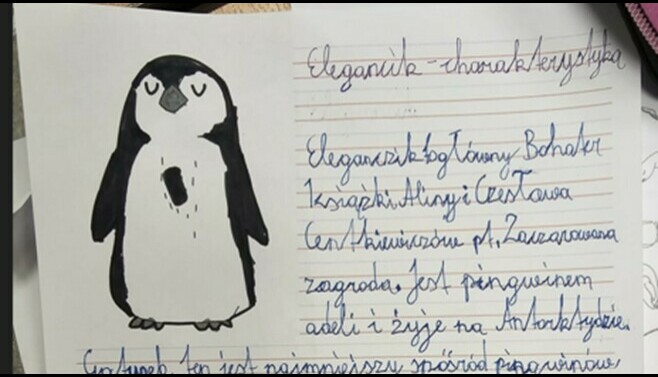 Elegancik - charakterystyka
Eleganczik to główny Bohater
książki Aliny i Czesława
Centkiewiczów pt. Zaczarowana
zagroda. Jest pingwinem
adeli i żyje na Antarktydzie.
Gatunek ten jest najmniejszy spośród pingwinów